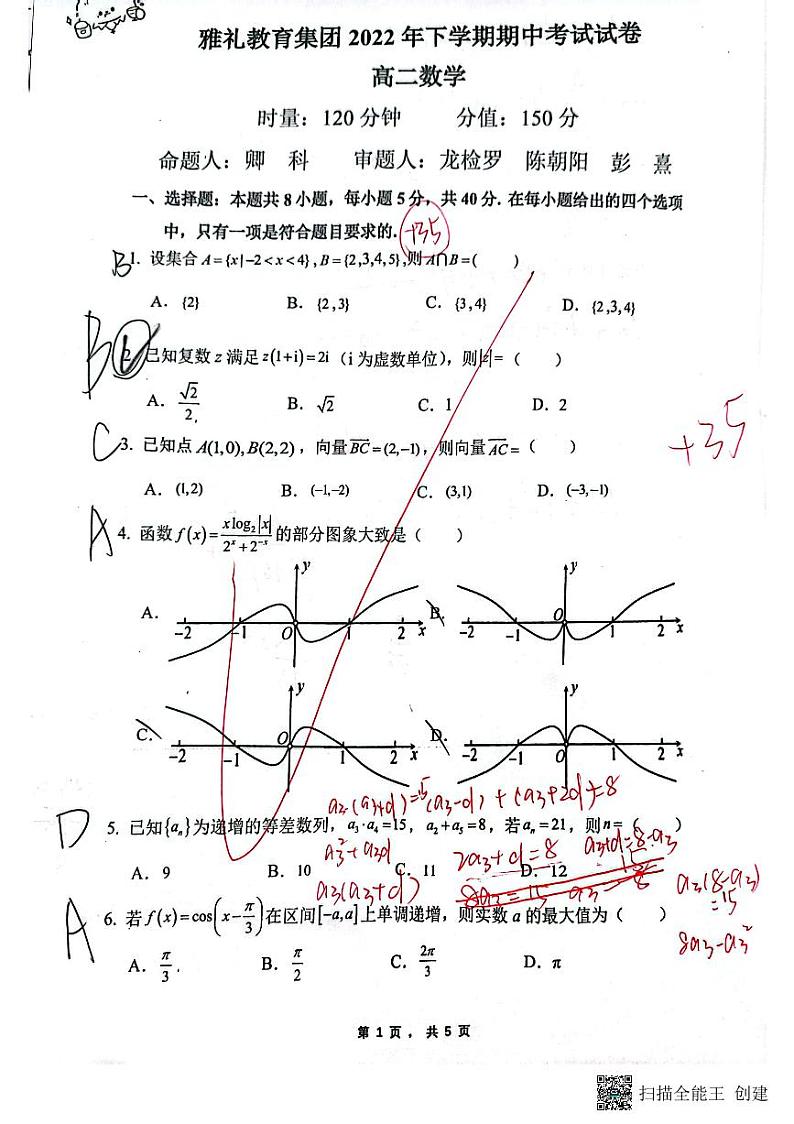 雅礼教育集团 2022 年下学期期中考试试卷
高二数学
时量：120 分钟 分值：150 分
命题人：卿 科 审题人：龙检罗 陈朝阳 彭 熹
一、选择题：本题共 8 小题，每小题 5 分，共 40 分. 在每小题给出的四个选项
中，只有一项是符合题目要求的. +35
B 1. 设集合 A={x|-2<x<4}, B={2,3,4,5},则 A∩B=( )
A. {2} B. {2,3} C. {3,4} D. {2,3,4}
B 2. 已知复数 z 满足 z(1+i)=2i（i 为虚数单位），则|z|=（ ）
A. √2/2 B. √2 C. 1 D. 2
+35
C 3. 已知点 A(1,0), B(2,2)，向量 BC=(2,-1)，则向量 AC=（ ）
A. (1,2) B. (-1,-2) C. (3,1) D. (-3,-1)
A 4. 函数 f(x)= xlog₂|x| / (2ˣ+2⁻ˣ) 的部分图象大致是（ ）
A. y -2 -1 O 1 2 x B. y -2 -1 O 1 2 x
C. y -2 -1 O 1 2 x D. y -2 -1 O 1 2 x
(a3-d) + (a3+2d)=8
D 5. 已知{aₙ}为递增的等差数列，a₃·a₄=15，a₂+a₅=8，若 aₙ=21，则 n=（ ）
a3²+a3d 2a3+d=8 a3+d=8-a3
A. 9 B. 10 C. 11 D. 12
a3(a3+d) 8a3=15 a3=15/8 a3(8-a3)
=15
A 6. 若 f(x)=cos(x-π/3)在区间[-a,a]上单调递增，则实数 a 的最大值为（ ）
8a3-a3²
A. π/3 B. π/2 C. 2π/3 D. π
第 1 页 ，共 5 页
扫描全能王 创建